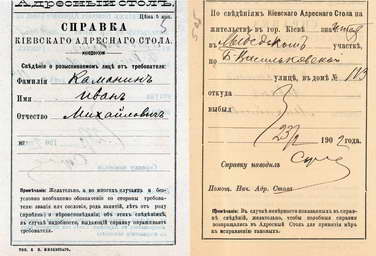 Адресный Столъ.
Цѣна 5 коп.
СПРАВКА
КІЕВСКАГО АДРЕСНАГО СТОЛА.
Свѣдѣнія о розыскиваемомъ лицѣ отъ требователя:
Фамилія Каманинъ
Имя Иванъ
Отчество Михайловичъ
Примѣчаніе: Желательно, а во многихъ случаяхъ и безусловно
необходимо обозначеніе со стороны требователя
званія или сословія, рода занятій, лѣтъ отъ роду
(приблиз.) и вѣроисповѣданія;
По свѣдѣніямъ Кіевскаго Адреснаго Стола на
жительствѣ въ гор. Кіевѣ
Лыбедскомъ участкѣ,
по Б-Васильковской
улицѣ, въ домѣ № 113
откуда
выбылъ
190 года.
Справку наводилъ
Помощ. Нач. Адр. Стола
Примѣчаніе: Въ случаѣ невѣрности показанныхъ въ справкѣ
свѣдѣній, желательно, чтобы подобныя справки
возвращались въ Адресный Столъ для принятія мѣръ
къ исправленію таковыхъ.